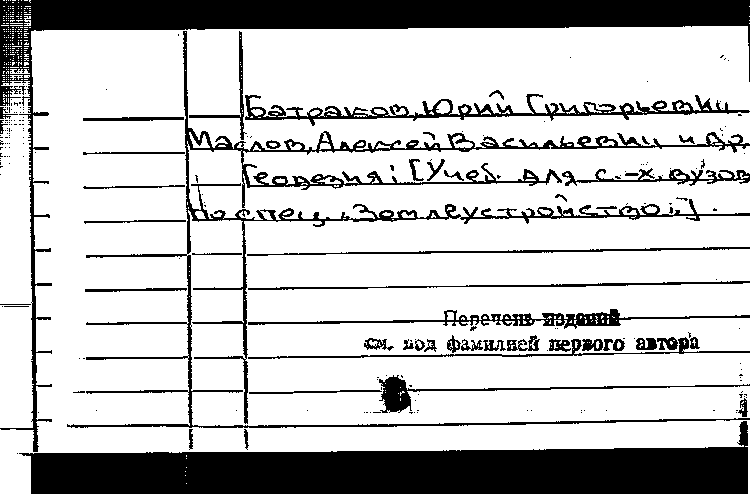 Батраков, Юрий Григорьевич.
Маслов, Алексей Васильевич и др.
Геодезия: [Учеб. для с.-х. вузов
по спец. „Землеустройство“].
Перечень изданий
см. под фамилией первого автора